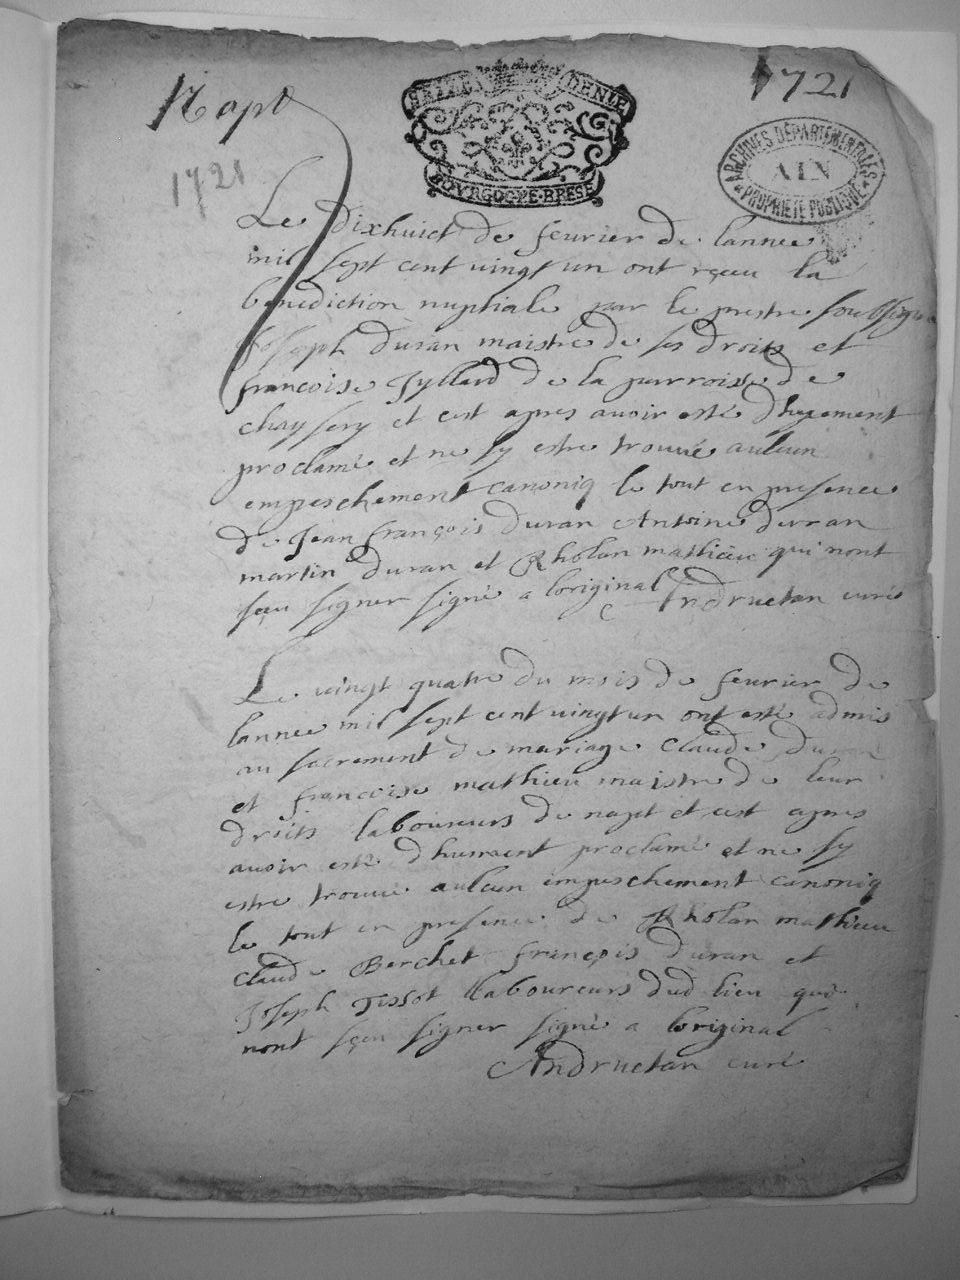 Napt
1721
SEIZE DENIE
BOVRGOGNE·BRESE
1721
ARCHIVES DÉPARTEMENTALES
AIN
PROPRIÉTÉ PUBLIQUE
Le dixhuict de feurier de lannee
mil sept cent vingt un ont reçeu la
benediction nuptiale par le prestre soubsigne
Joseph duran maistre de ses droits et
francoise Jyllard de la parroisse de
chaysery et cest apres avoir esté dhuement
proclamé et ne sy estre trouué aulcun
empeschement canoniq le tout en presence
de Jean françois duran Antoine durran
martin duran et Rholan mathieu qui nont
sçeu signer signé a loriginal Andruetan curé
Le vingt quatre du mois de feurier de
lannee mil sept cent vingt un ont esté admis
au sacrement de mariage claude duran
et francoise mathieu maistre de leur
droits laboureurs de napt et cest apres
avoir esté dhument proclamé et ne sy
estre trouué aulcun empeschement canoniq
le tout en presence de Rholan mathieu
claude Berchet françois duran et
Joseph Tissot laboureurs dud lieu qui
nont sçeu signer signé a loriginal
Andruetan curé